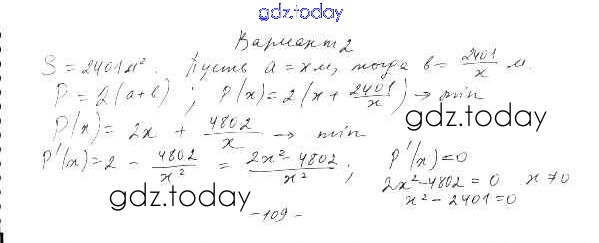 gdz.today
Вариант 2
S = 2401 м². Пусть a = x м, тогда b = 2401/x м.
P = 2(a+b); P(x) = 2(x + 2401/x) → min
P(x) = 2x + 4802/x → min
gdz.today
P'(x) = 2 - 4802/x² = (2x² - 4802)/x²; P'(x) = 0
2x² - 4802 = 0 x ≠ 0
gdz.today
x² - 2401 = 0
- 109 -